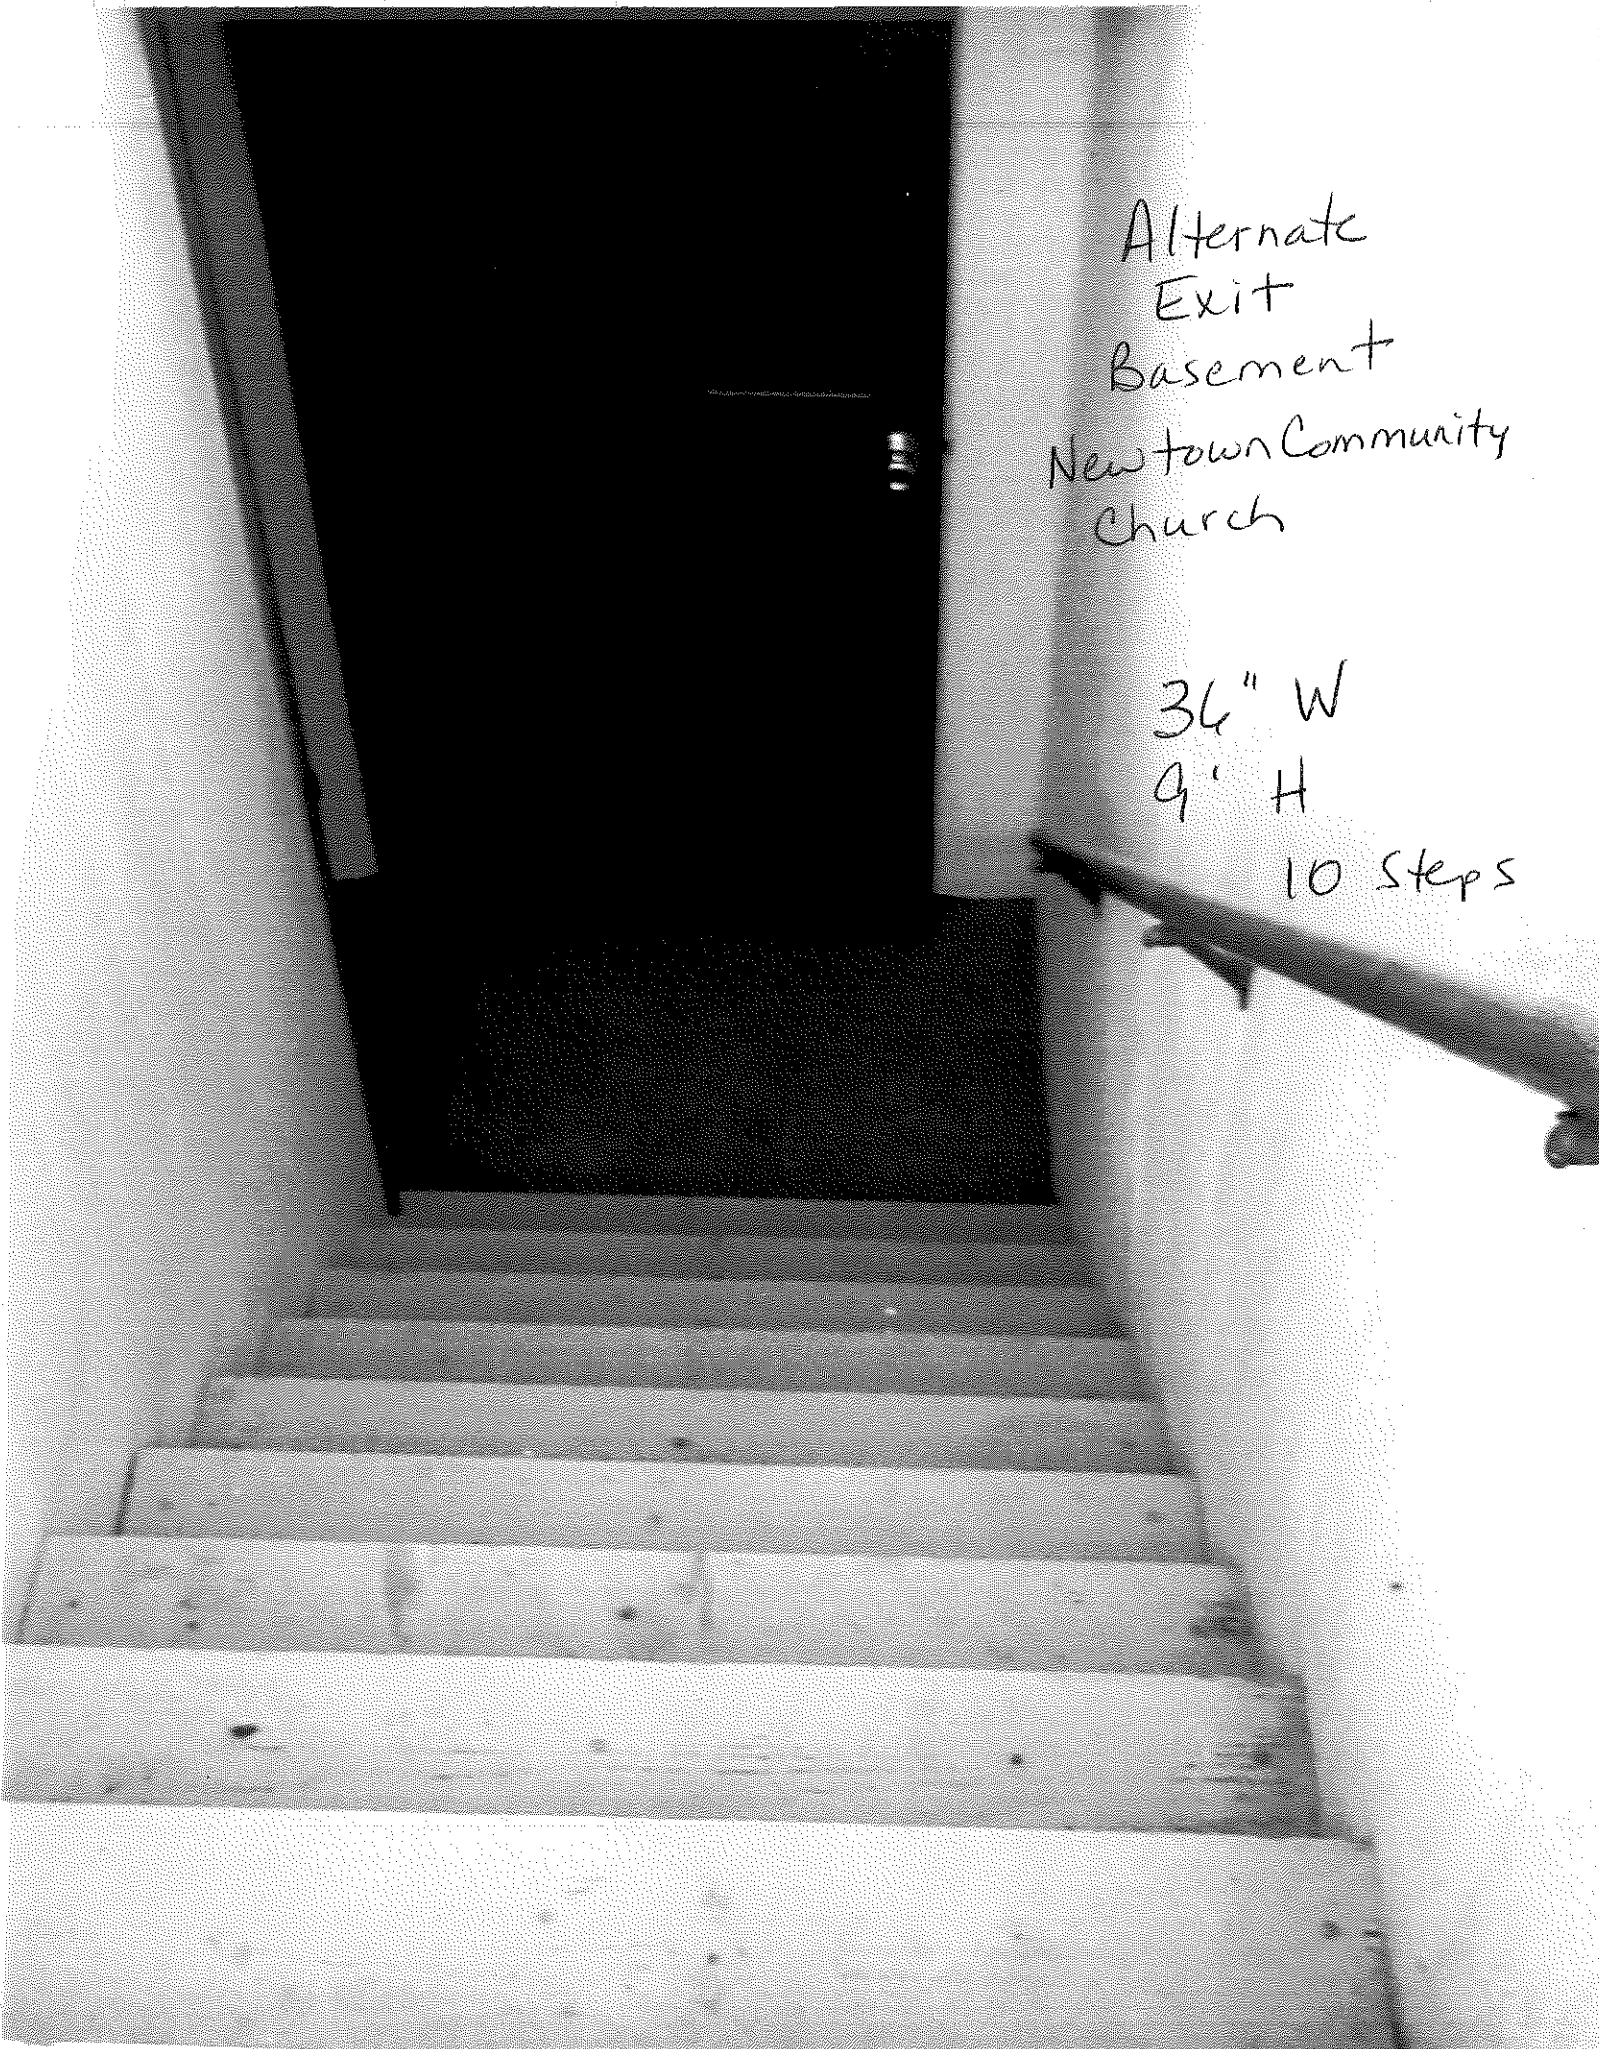 Alternate
Exit
Basement
Newtown Community
Church
36" W
9' H
10 Steps